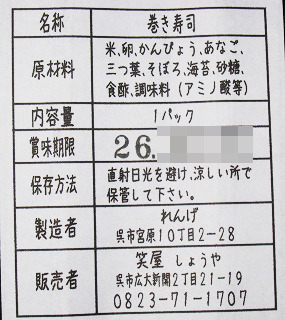 名称 巻き寿司
原材料 米、卵、かんぴょう、あなご、
三つ葉、そぼろ、海苔、砂糖、
食酢、調味料(アミノ酸等)
内容量 1パック
賞味期限 26.
保存方法 直射日光を避け、涼しい所で
保管して下さい。
製造者 れんげ
呉市宮原10丁目2-28
販売者 笑屋 しょうや
呉市広大新開2丁目21-19
0823-71-1707